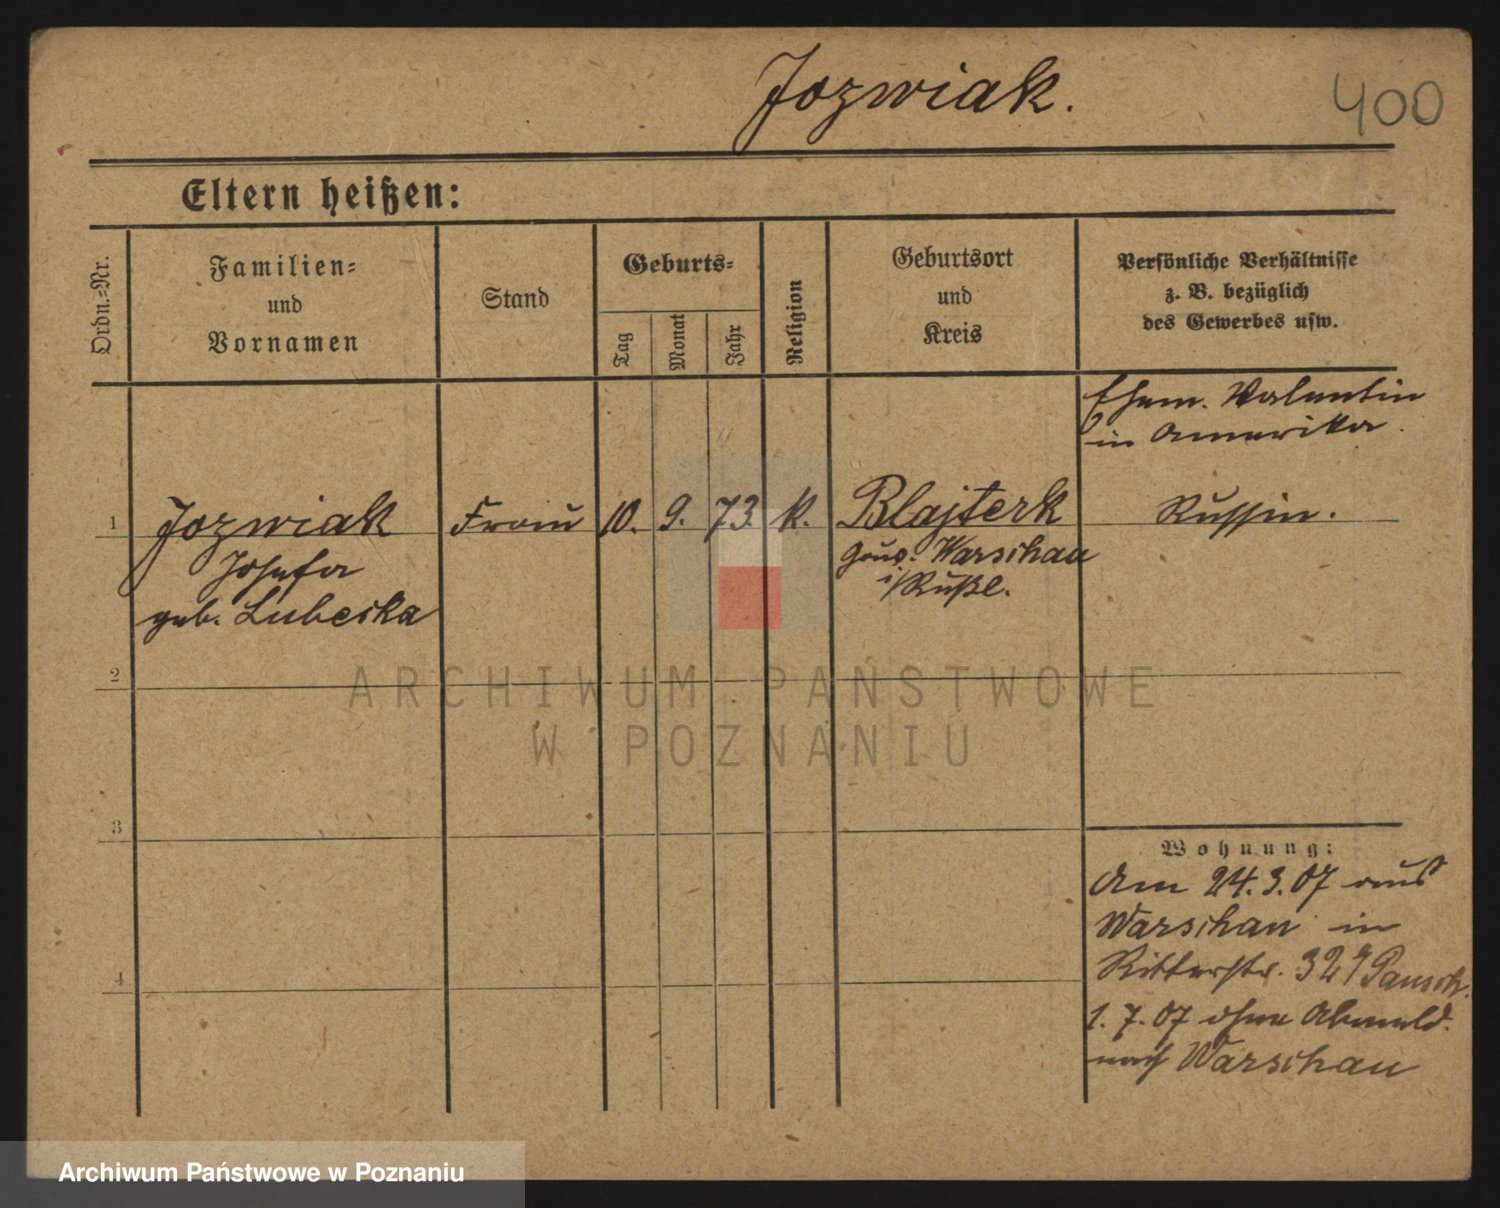 Jozwiak.
400
Eltern heißen:
Ordn.=Nr.
Familien=
und
Vornamen
Stand
Geburts=
Tag
Monat
Jahr
Religion
Geburtsort
und
Kreis
Persönliche Verhältnisse
z. B. bezüglich
des Gewerbes usw.
Ehem. Valentin
in Amerika.
1 Jozwiak Frau 10. 9. 73. k. Blajterk Russin.
Josefa Gouv. Warschau
geb. Lubecka i/Rußl.
2
ARCHIWUM PAŃSTWOWE
W POZNANIU
3
Wohnung:
Am 24.3.07 aus
Warschau in
4 Ritterstr. 32
1.7.07 ohne Abmeld.
nach Warschau
Archiwum Państwowe w Poznaniu